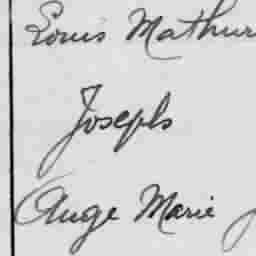 Louis Mathur
Joseph
Ange Marie